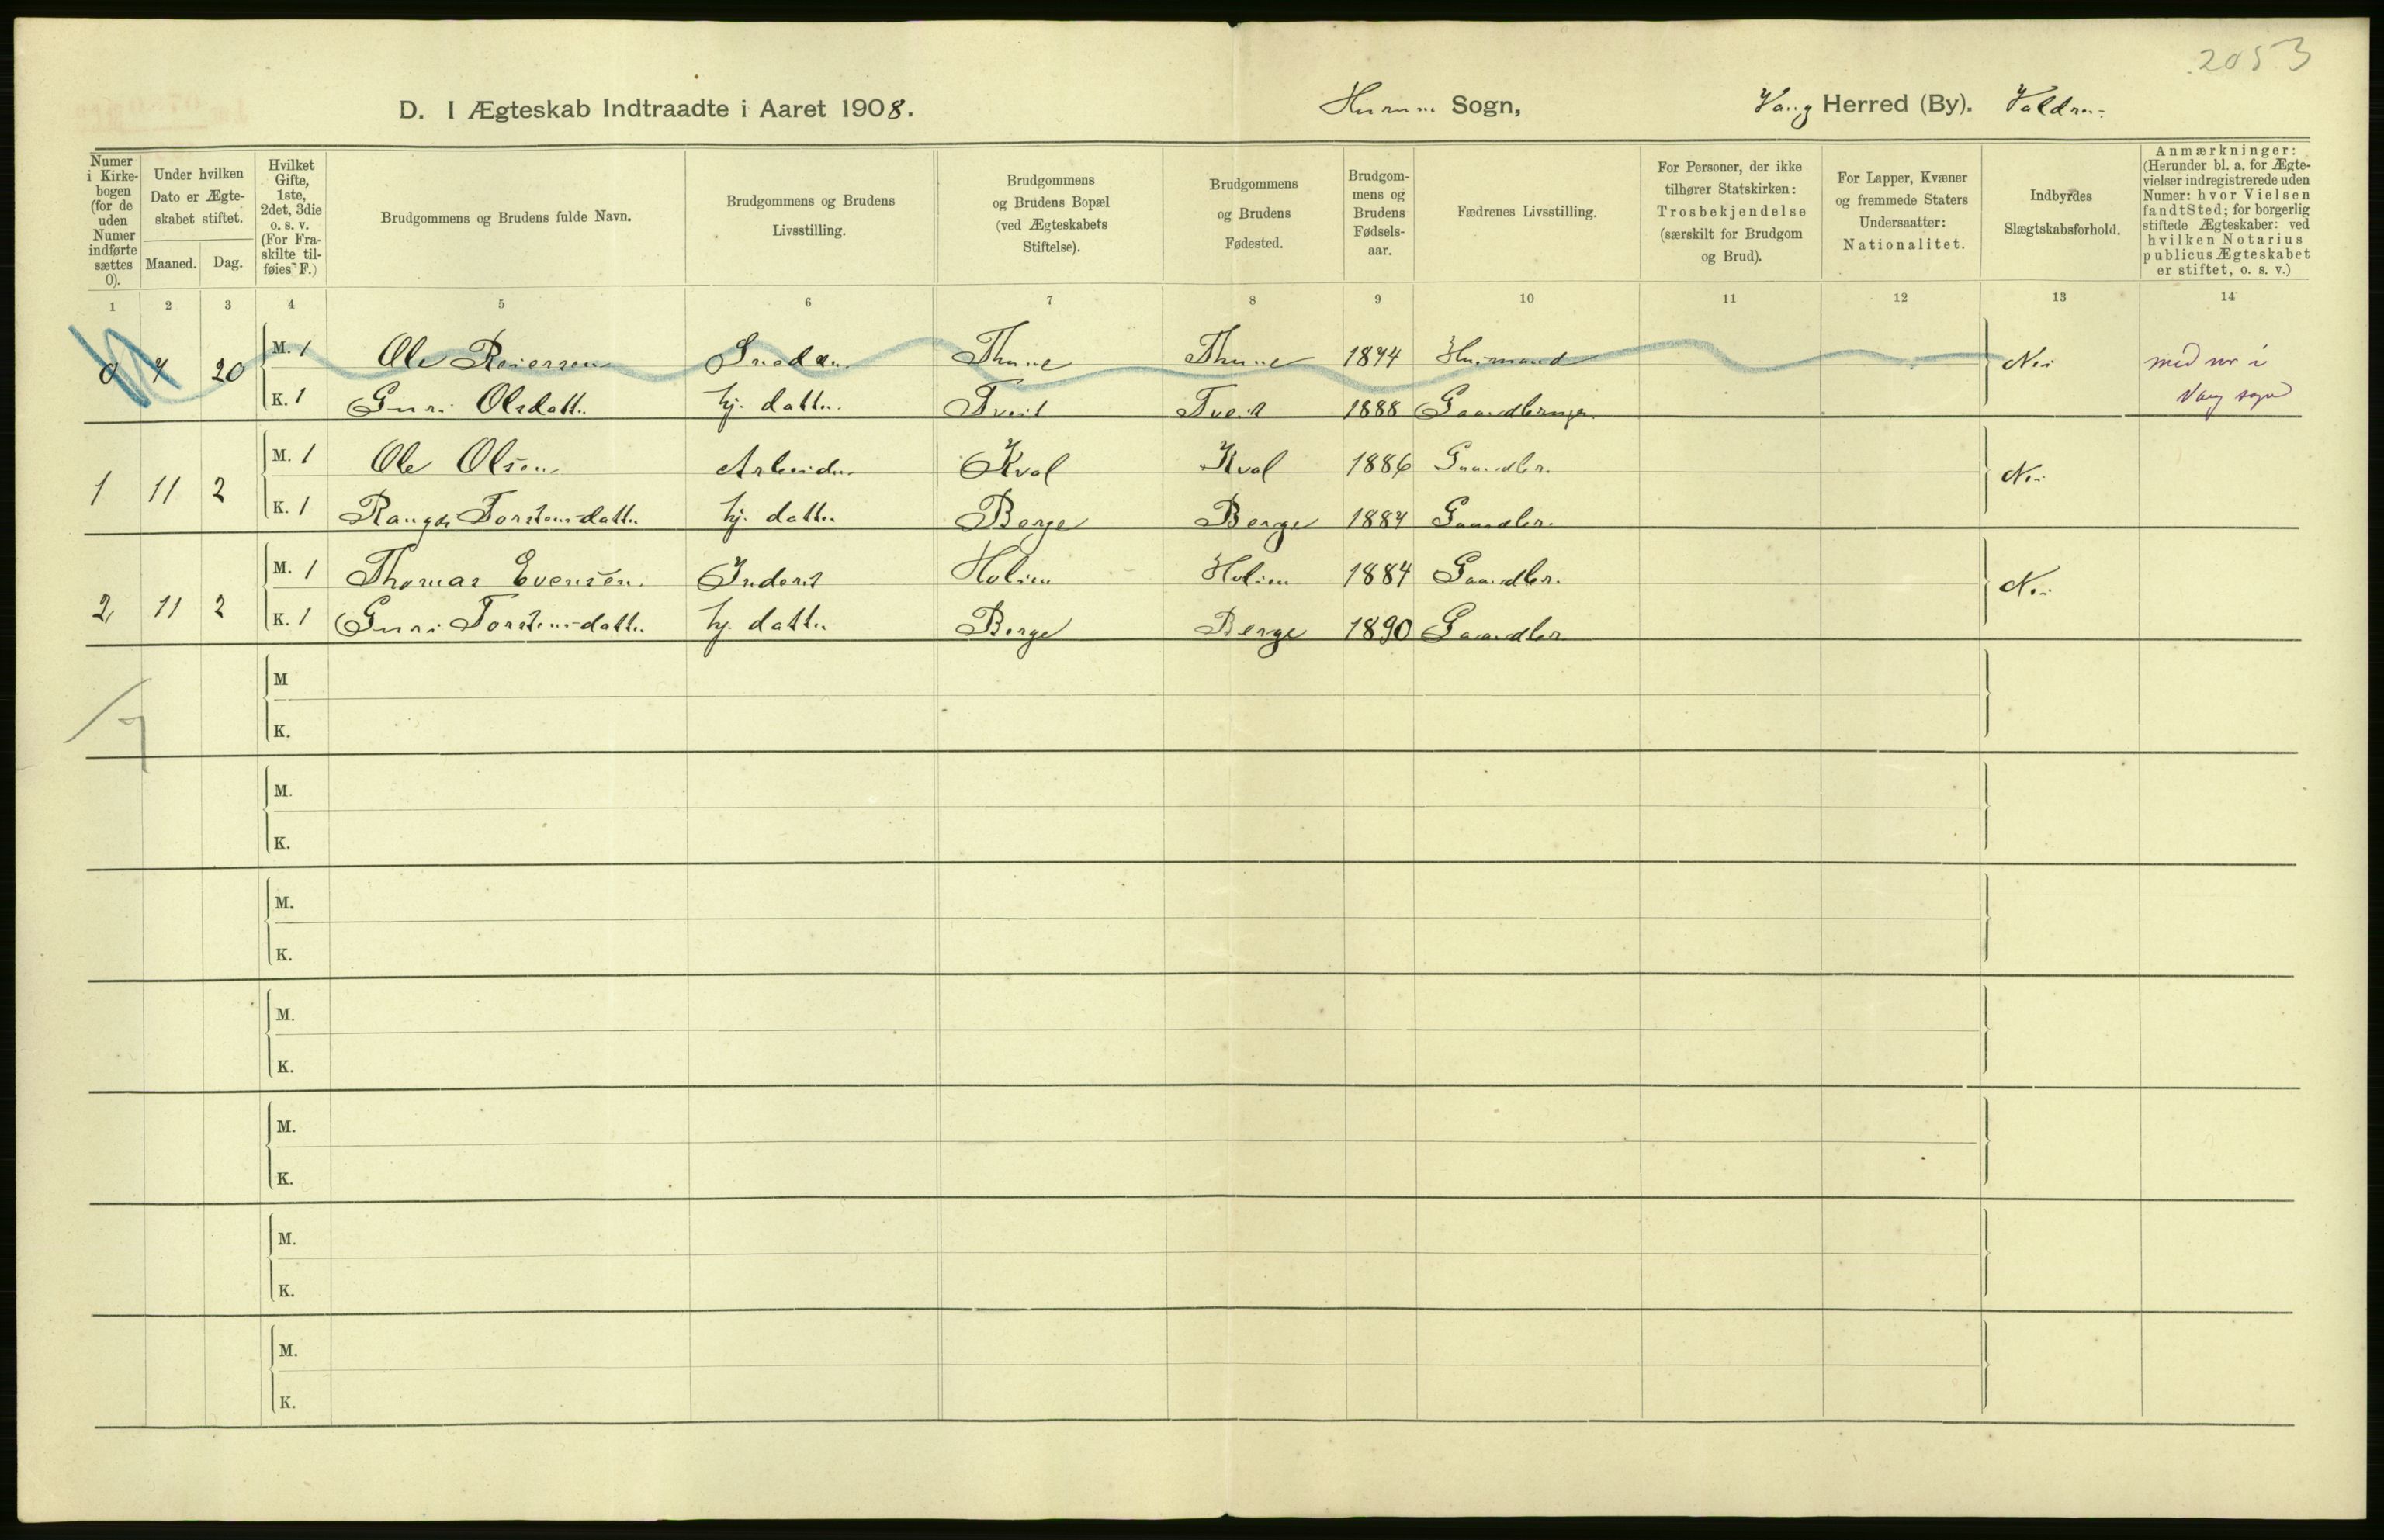 2053
D. I Ægteskab Indtraadte i Aaret 1908. Hurum Sogn, Vang Herred (By). Valdres
Numer i Kirkebogen (for de uden Numer indførte sættes 0).
Under hvilken Dato er Ægteskabet stiftet.
Maaned. Dag.
Hvilket Gifte, 1ste, 2det, 3die o. s. v. (For Fraskilte tilføies F.)
Brudgommens og Brudens fulde Navn.
Brudgommens og Brudens Livsstilling.
Brudgommens og Brudens Bopæl (ved Ægteskabets Stiftelse).
Brudgommens og Brudens Fødested.
Brudgommens og Brudens Fødselsaar.
Fædrenes Livsstilling.
For Personer, der ikke tilhører Statskirken: Trosbekjendelse (særskilt for Brudgom og Brud).
For Lapper, Kvæner og fremmede Staters Undersaatter: Nationalitet.
Indbyrdes Slægtskabsforhold.
Anmærkninger: (Herunder bl. a. for Ægtevielser indregistrerede uden Numer: hvor Vielsen fandt Sted; for borgerlig stiftede Ægteskaber: ved hvilken Notarius publicus Ægteskabet er stiftet, o. s. v.)
1 2 3 4 5 6 7 8 9 10 11 12 13 14
0 7 20 M. 1 Ole Reiersen Thune Thune Husmand Nei med nr i
K. 1 Guri Olsdatter hj. datter Tveit Tveit 1888 Gaardbruger Vang sogn
1 11 2 M. 1 Ole Olsen Arbeider Kval Kval 1886 Gaardbr. Nei
K. 1 Torstensdatter hj. datter Berge Berge 1884 Gaardbr.
2 11 2 M. 1 Thomas Evensen Inderst Holien Holien 1884 Gaardbr. Nei
K. 1 Guri Torstensdatter hj. datter Berge Berge 1890 Gaardbr
M
K.
M.
K.
M.
K.
M.
K.
M.
K.
M.
K.
M.
K.